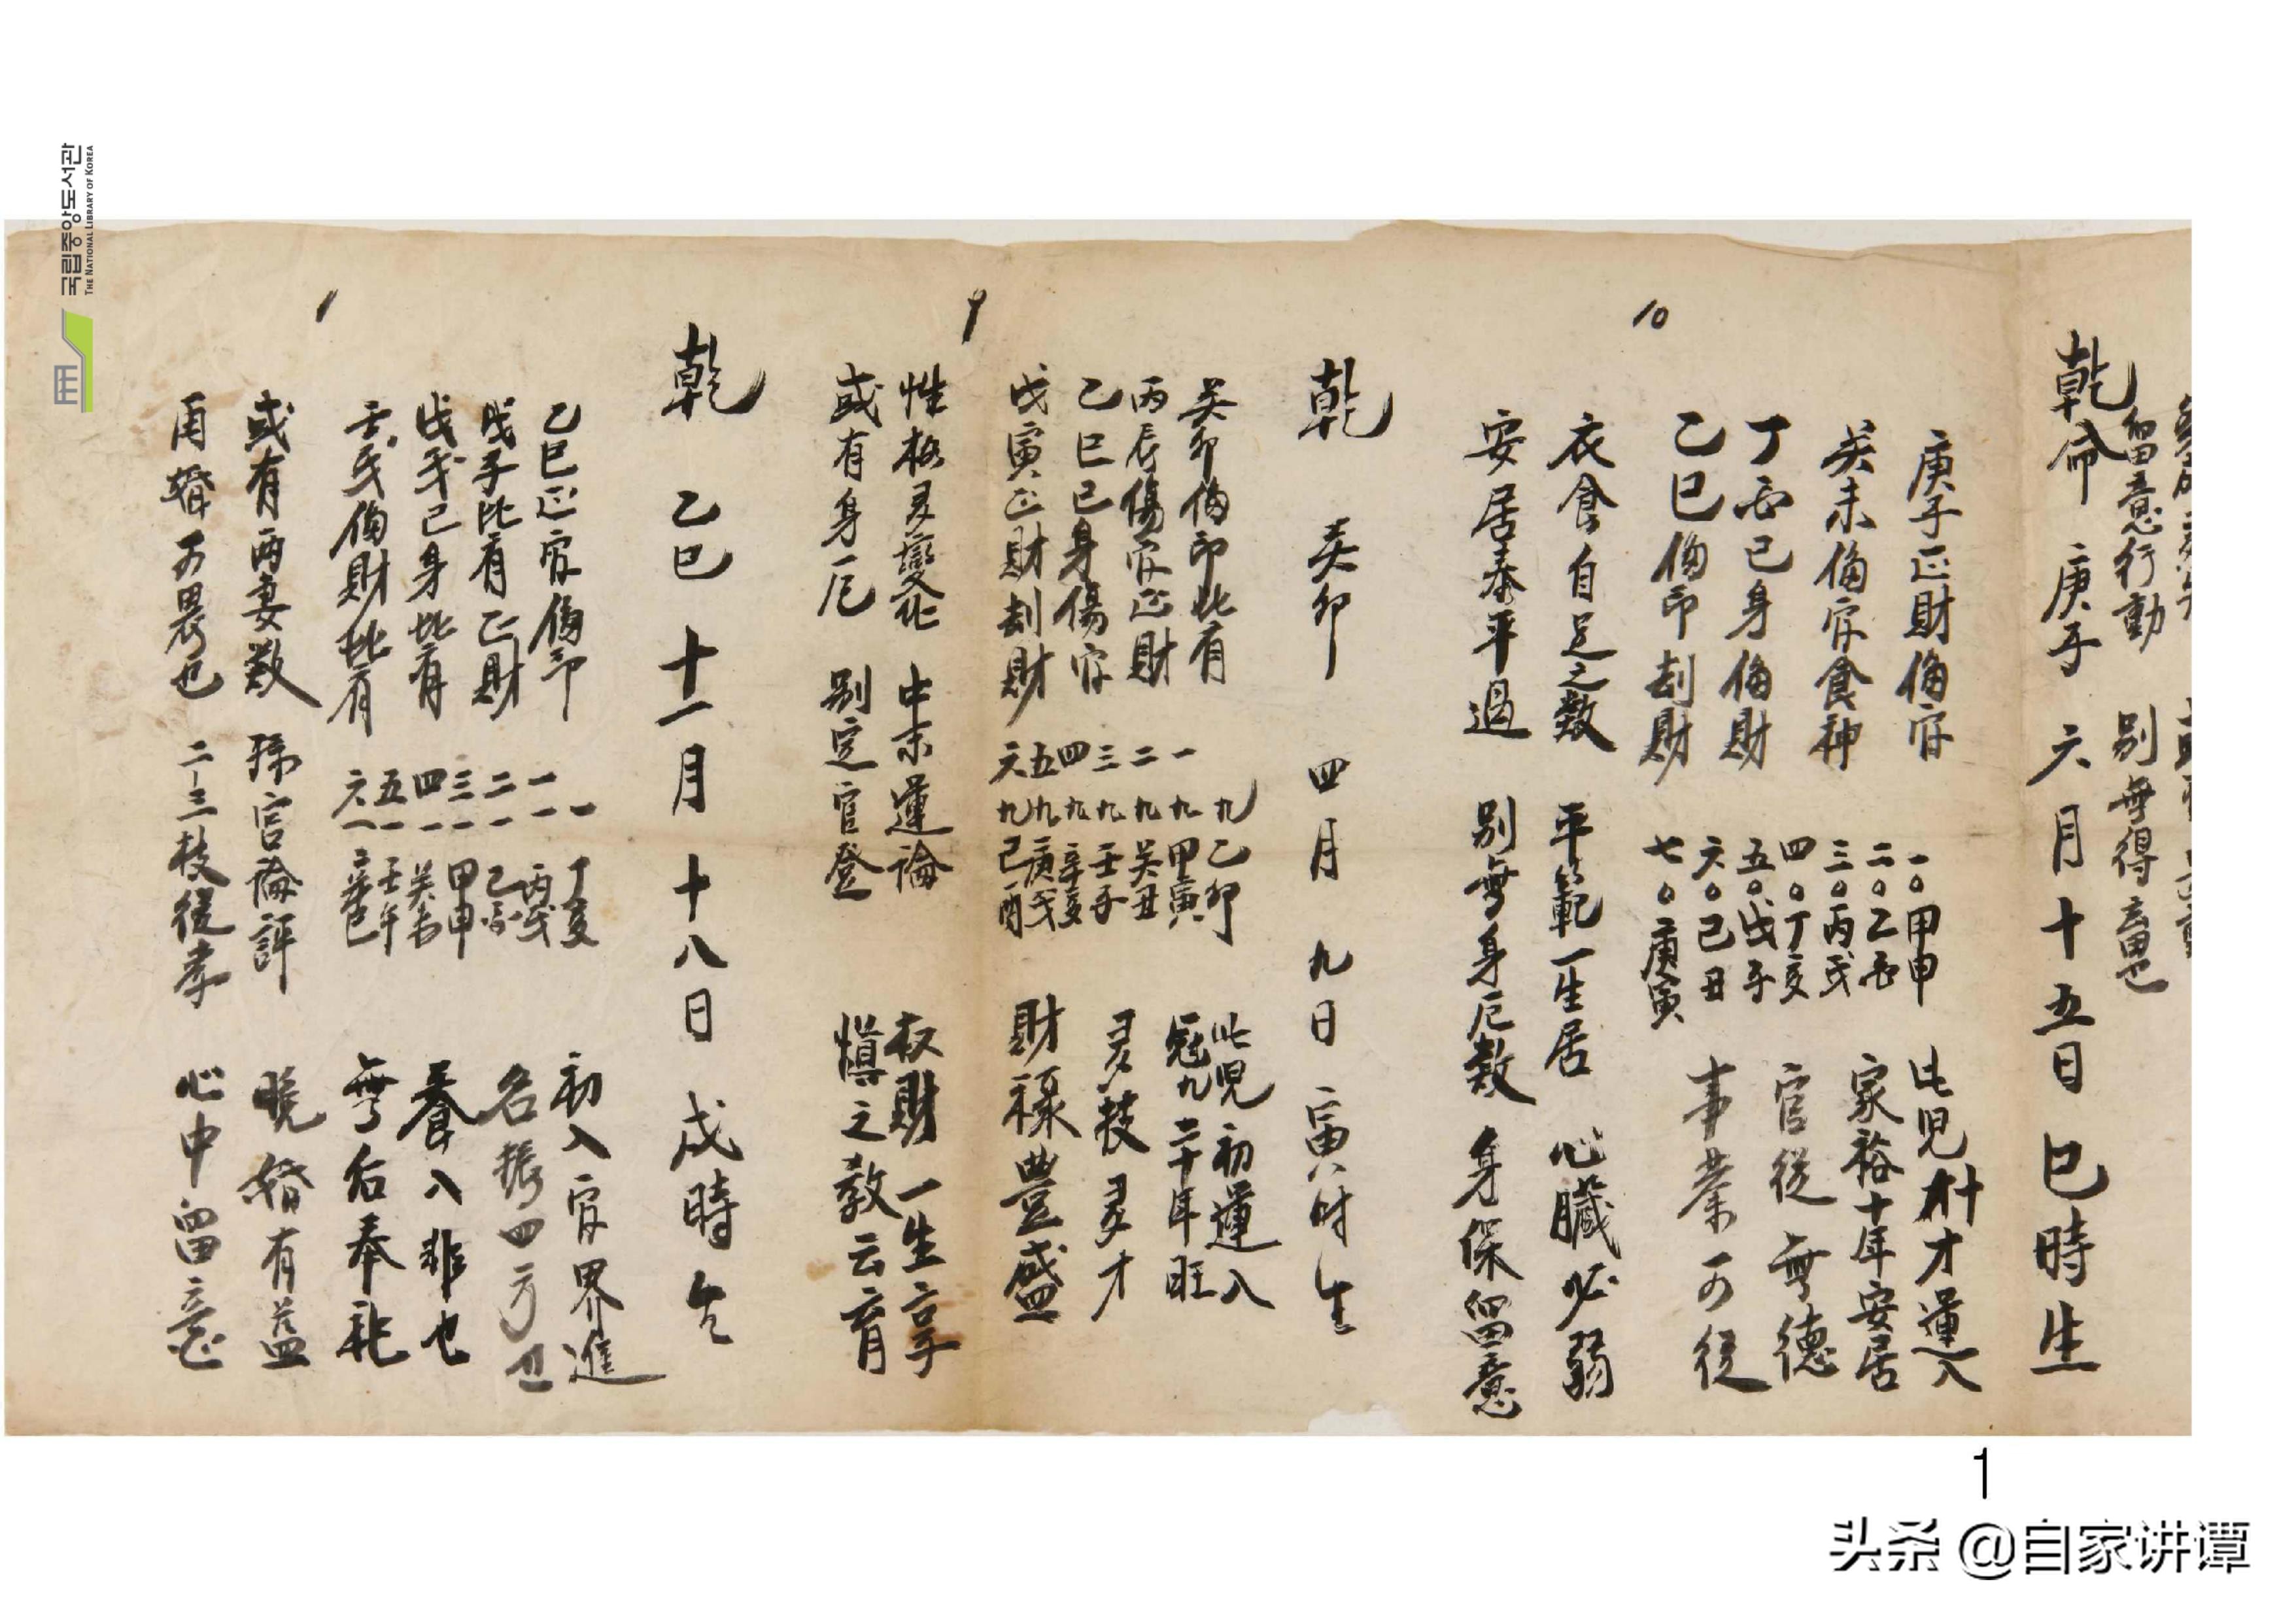 留意行動 別無得意也
乾命 庚子 六月十五日 巳時生
庚子正財偏官
癸未偏官食神
丁酉己身偏財
乙巳偏印劫財
一〇甲申
二〇乙酉
三〇丙戌
四〇丁亥
五〇戊子
六〇己丑
七〇庚寅
此児 才運入
家裕十年安居
官従無德
事業可従
衣食自足之数 平範一生居 心臟必弱
安居泰平過 別無身厄数 身保留意
10
乾 癸卯 四月 九日 寅时生
癸卯偏印比有
丙辰傷官正財
乙巳己身傷官
戊寅正財劫財
九乙卯
一九甲寅
二九癸丑
三九壬子
四九辛亥
五九庚戌
六九己酉
此児初運入
冠九二十年旺
多技多才
財祿豊盛
性格多變化 中末運論 权財一生享
或有身厄 別定官登 慎之教云育
9
乾 乙巳 十一月 十八日 戌時
乙巳正官偏印
戊子比有正財
戊戌己身比有
壬戌偏財比有
一丁亥
一一丙戌
二一乙酉
三一甲申
四一癸未
五一壬午
六一辛巳
初入官界進
名振四方
養入非也
無后奉祀
或有両妻数 官論評 晚婚有益
再婚可畏也 二三枝從孝 心中留意
1
국립중앙도서관
THE NATIONAL LIBRARY OF KOREA
1
头条 @自家讲谭